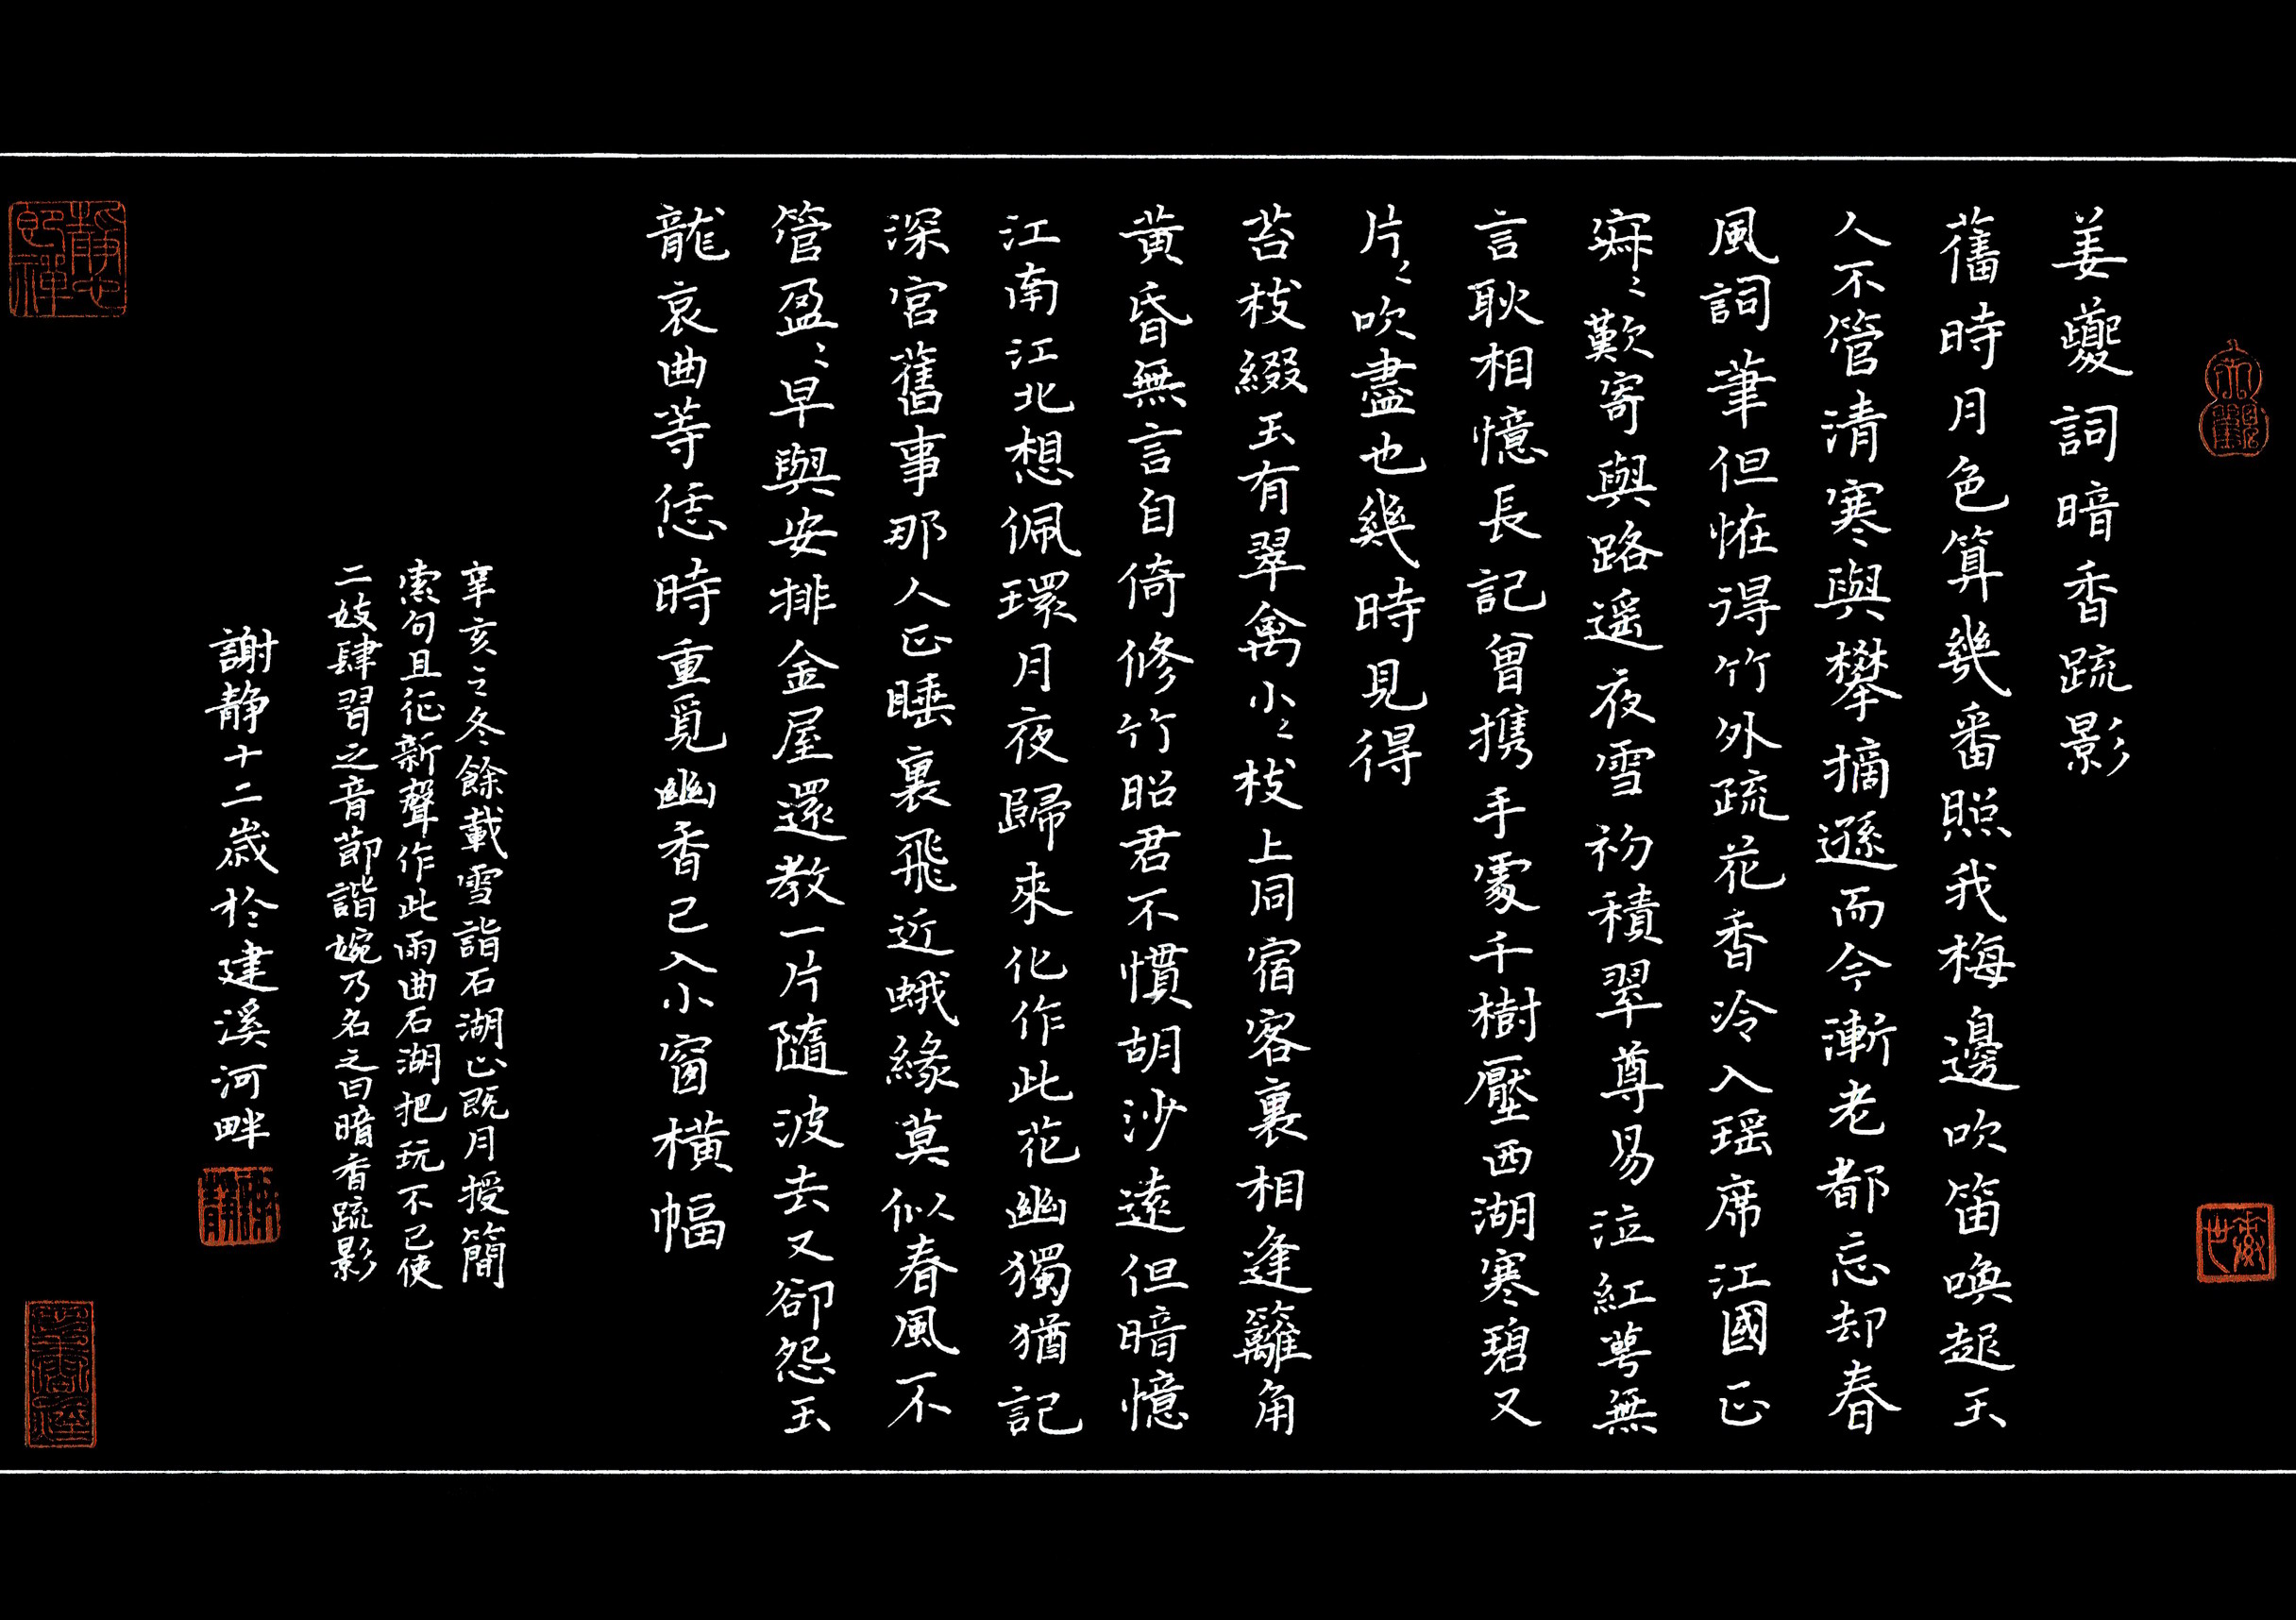 姜夔詞暗香疏影
舊時月色算幾番照我梅邊吹笛喚起玉
人不管清寒與攀摘遜而今漸老都忘却春
風詞筆但恠得竹外疏花香冷入瑶席江國正
寂〻歎寄與路遥夜雪初積翠尊易泣紅萼無
言耿相憶長記曾携手處千樹壓西湖寒碧又
片〻吹盡也幾時見得
苔枝綴玉有翠禽小〻枝上同宿客裏相逢籬角
黄昏無言自倚修竹昭君不慣胡沙遠但暗憶
江南江北想佩環月夜歸來化作此花幽獨猶記
深宮舊事那人正睡裏飛近蛾緑莫似春風不
管盈〻早與安排金屋還教一片隨波去又卻怨玉
龍哀曲等恁時重覓幽香已入小窗横幅
辛亥之冬餘載雪詣石湖止既月授簡
索句且征新聲作此兩曲石湖把玩不已使
二妓肆習之音節諧婉乃名之曰暗香疏影
謝静十二歲於建溪河畔